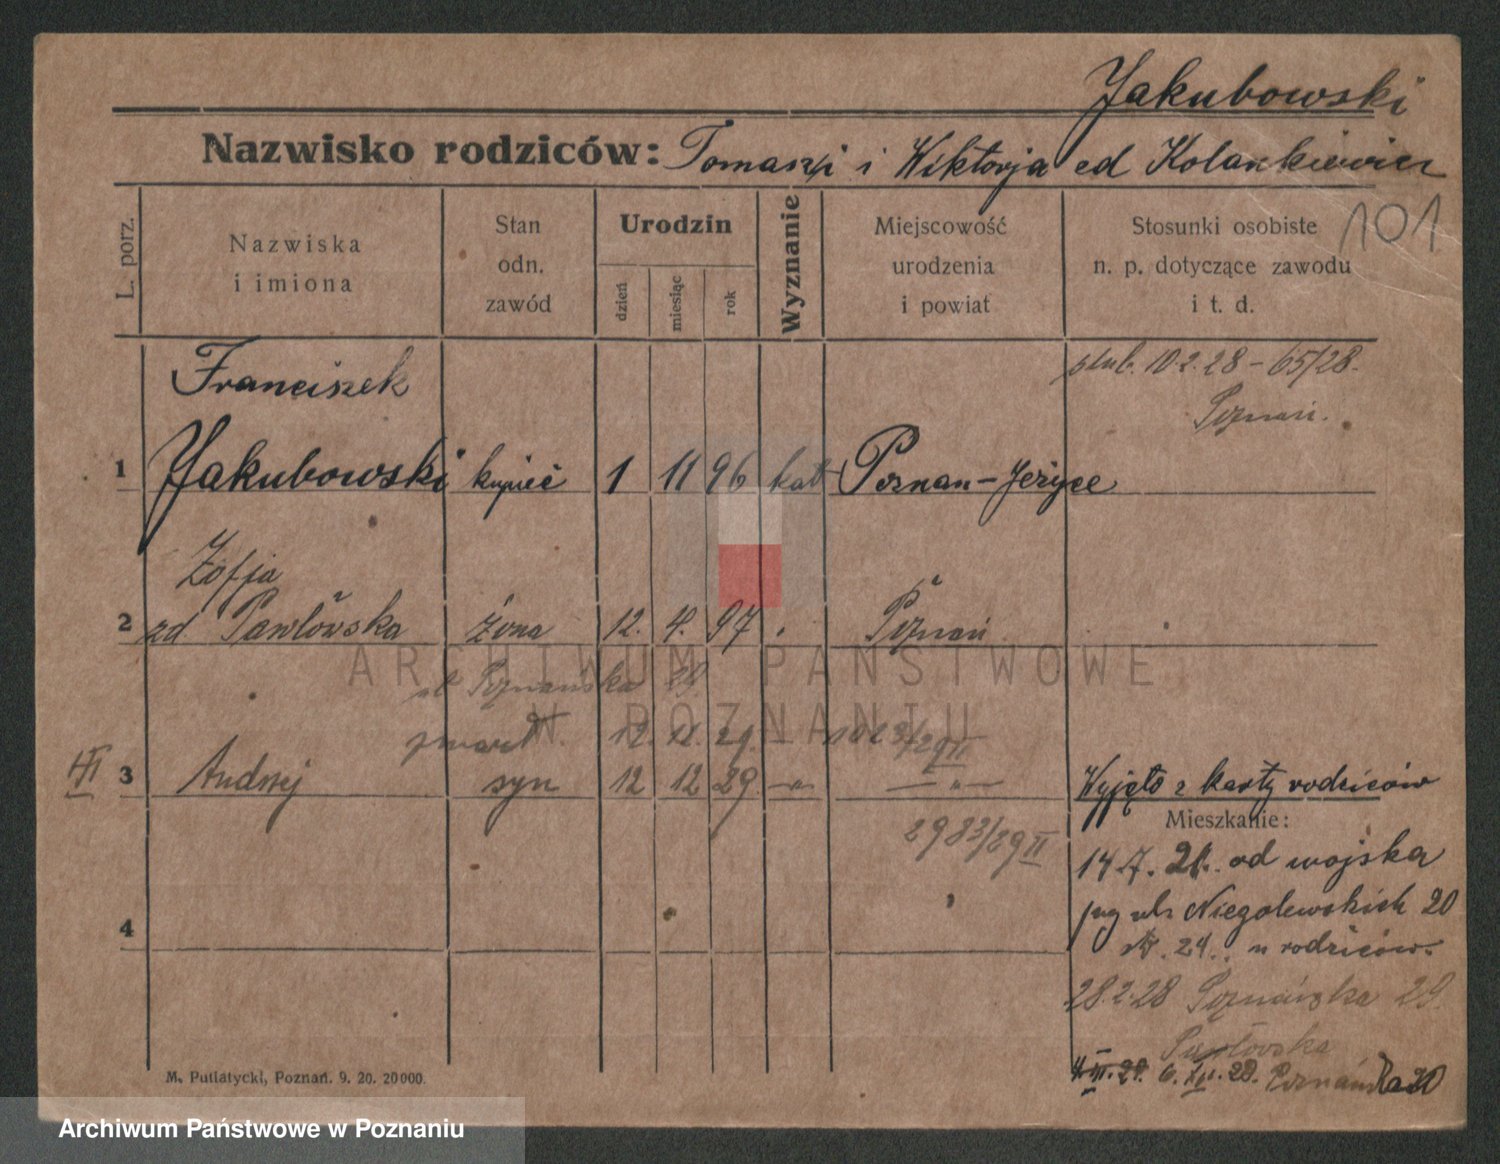 Jakubowski
Nazwisko rodziców: Tomasz i Wiktorja od Kolankiewicz
101
L. porz.
Nazwiska
i imiona
Stan
odn.
zawód
Urodzin
dzień
miesiąc
rok
Wyznanie
Miejscowość
urodzenia
i powiat
Stosunki osobiste
n. p. dotyczące zawodu
i t. d.
ślub. 10.2.28 – 65/28.
Poznań.
Franciszek
1 Jakubowski kupiec 1 11 96 kat Poznan–Jeżyce
Zofja
2 zd Pawłowska żona 12. 4. 97 Poznań
ARCHIWUM PAŃSTWOWE
ul Poznańska 29
W POZNANIU
12.
3 Andrzej syn 12 12 29 –„– –„–
2983/29 II
Wyjęto z karty rodziców
Mieszkanie:
14.7.21. od wojska
ul. Niegolewskich 20
4
24.. u rodziców.
28.2.28 Poznańska 29.
Pawłowska
Poznańska 30
M. Putiatycki, Poznań. 9. 20. 20000.
Archiwum Państwowe w Poznaniu